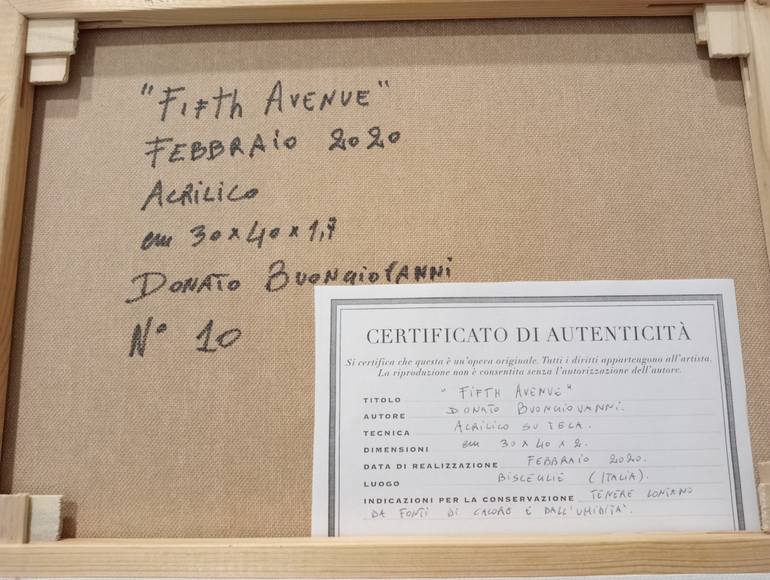 "FIFTH AVENUE"
FEBBRAIO 2020
ACRILICO
cm 30x40x1,7
DONATO BUONGIOVANNI
N° 10
CERTIFICATO DI AUTENTICITÀ
Si certifica che questa è un'opera originale. Tutti i diritti appartengono all'artista.
La riproduzione non è consentita senza l'autorizzazione dell'autore.
TITOLO "FIFTH AVENUE"
AUTORE DONATO BUONGIOVANNI.
TECNICA ACRILICO SU TELA.
DIMENSIONI cm 30x40x2.
DATA DI REALIZZAZIONE FEBBRAIO 2020.
LUOGO BISCEGLIE (ITALIA).
INDICAZIONI PER LA CONSERVAZIONE TENERE LONTANO
DA FONTI DI CALORE E DALL'UMIDITA'.